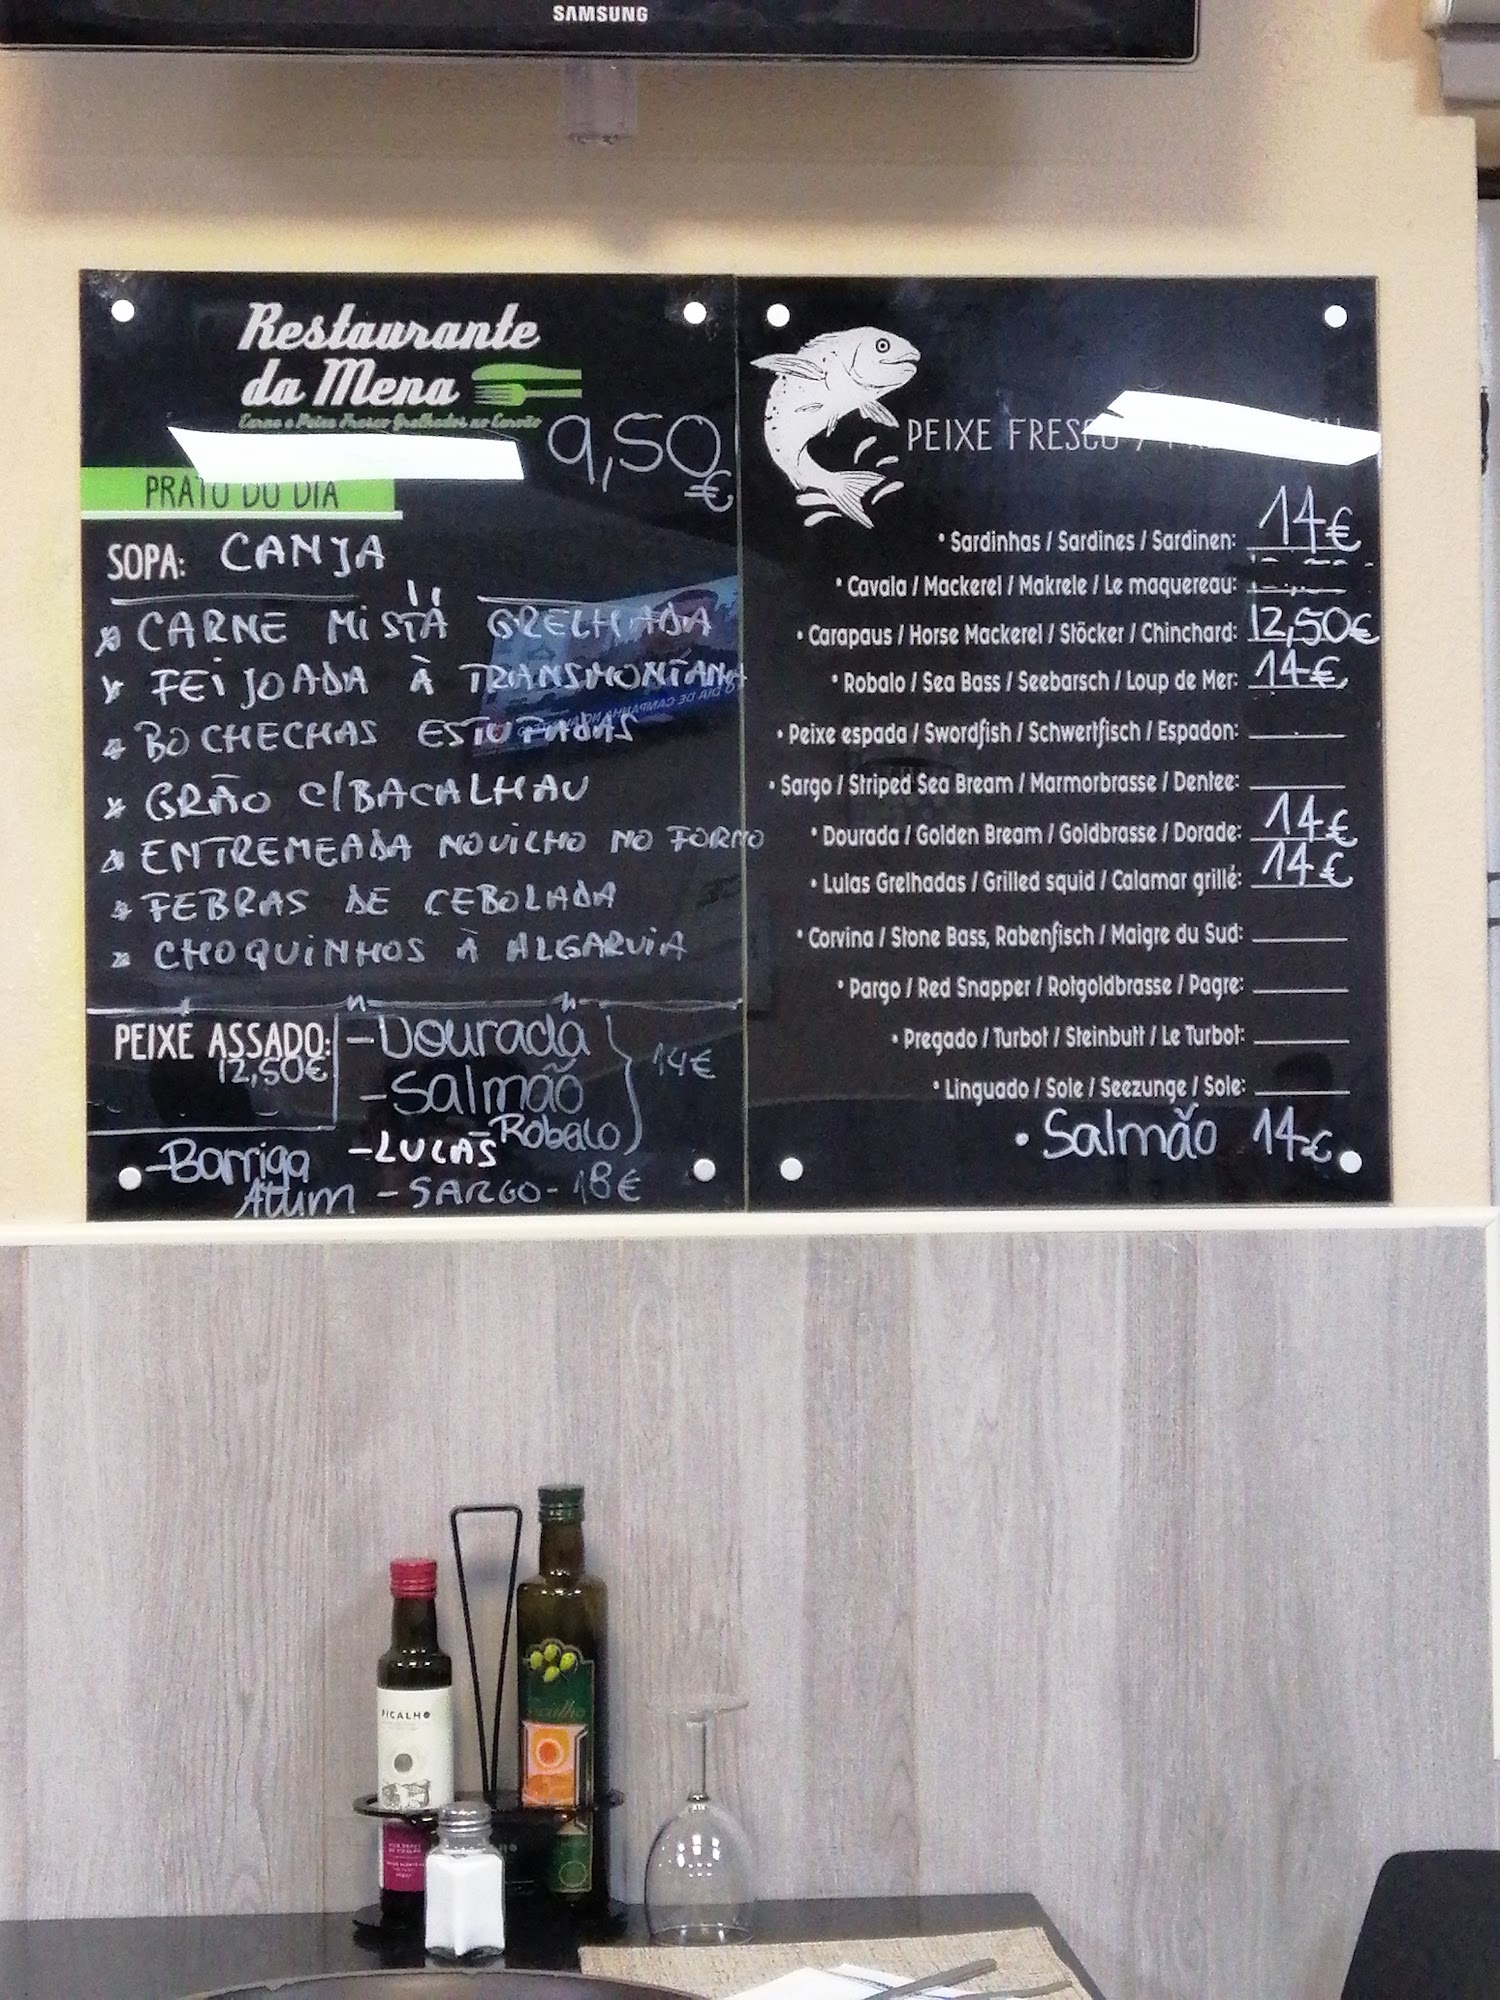 SAMSUNG
Restaurante
da Mena
Carne e Peixe Fresco Grelhados no Carvão
9,50
€
PRATO DO DIA
SOPA: CANJA
CARNE MISTA GRELHADA
FEIJOADA À TRANSMONTANA
BOCHECHAS ESTUFADAS
GRÃO C/BACALHAU
ENTREMEADA NOVILHO NO FORNO
FEBRAS DE CEBOLADA
CHOQUINHOS À ALGARVIA
PEIXE ASSADO:
12,50€
-Dourada
-Salmão
14€
-Robalo
-LULAS
-Barriga
Atum
-SARGO-18€
PEIXE FRESCO /
• Sardinhas / Sardines / Sardinen: 14€
• Cavala / Mackerel / Makrele / Le maquereau:
• Carapaus / Horse Mackerel / Stöcker / Chinchard: 12,50€
• Robalo / Sea Bass / Seebarsch / Loup de Mer: 14€
• Peixe espada / Swordfish / Schwertfisch / Espadon:
• Sargo / Striped Sea Bream / Marmorbrasse / Dentee:
• Dourada / Golden Bream / Goldbrasse / Dorade: 14€
• Lulas Grelhadas / Grilled squid / Calamar grillé: 14€
• Corvina / Stone Bass, Rabenfisch / Maigre du Sud:
• Pargo / Red Snapper / Rotgoldbrasse / Pagre:
• Pregado / Turbot / Steinbutt / Le Turbot:
• Linguado / Sole / Seezunge / Sole:
• Salmão 14€
PICALHO
Picalho